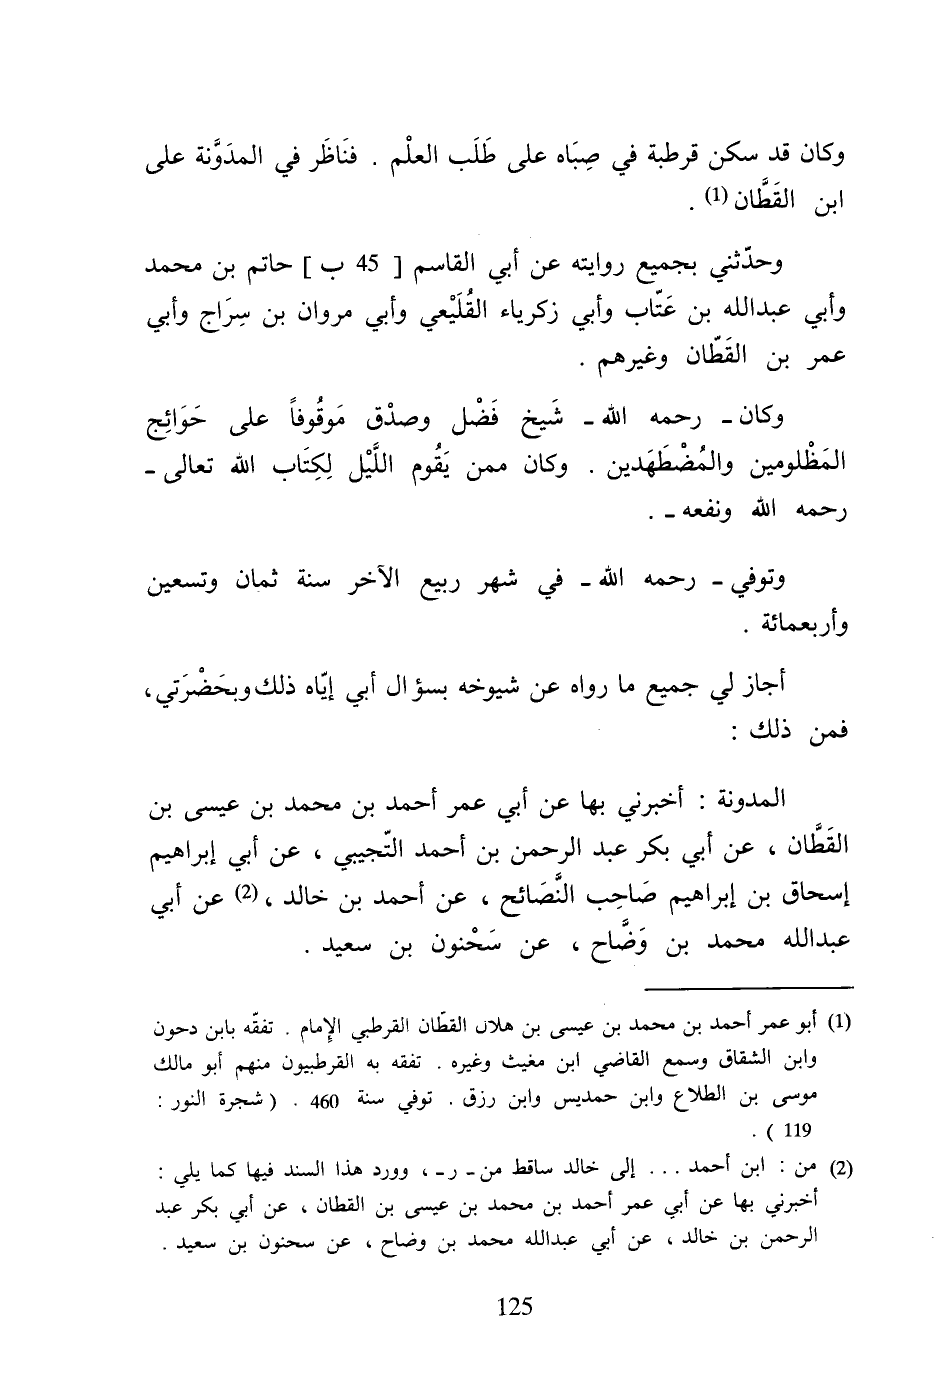 وكان قد سكن قرطبة في صِبَاه على طَلَب العلْم . فنَاظَر في المدَوَّنة على
ابن القَطَّان (1) .
وحدّثني بجميع روايته عن أبي القاسم [ 45 ب ] حاتم بن محمد
وأبي عبدالله بن عَتّاب وأبي زكرياء القُلَيْعي وأبي مروان بن سِرَاج وأبي
عمر بن القَطّان وغيرهم .
وكان ـ رحمه الله ـ شَيخ فَضْل وصدْق مَوقُوفاً على حَوَائِج
المَظْلومين والمُضْطَهَدين . وكان ممن يَقُوم اللَّيْل لِكِتَاب الله تعالى ـ
رحمه الله ونفعه ـ .
وتوفي ـ رحمه الله ـ في شهر ربيع الآخر سنة ثمان وتسعين
وأربعمائة .
أجاز لي جميع ما رواه عن شيوخه بسؤال أبي إيّاه ذلك وبحَضْرَتي ،
فمن ذلك :
المدونة : أخبرني بها عن أبي عمر أحمد بن محمد بن عيسى بن
القَطَّان ، عن أبي بكر عبد الرحمن بن أحمد التّجيبي ، عن أبي إبراهيم
إسحاق بن إبراهيم صَاحِب النَّصَائح ، عن أحمد بن خالد ، (2) عن أبي
عبدالله محمد بن وَضَّاح ، عن سَحْنون بن سعيد .
(1) أبو عمر أحمد بن محمد بن عيسى بن هلال القطّان القرطبي الإمام . تفقّه بابن دحون
وابن الشقاق وسمع القاضي ابن مغيث وغيره . تفقه به القرطبيون منهم أبو مالك
موسى بن الطلاع وابن حمديس وابن رزق . توفي سنة 460 . ( شجرة النور :
119 ) .
(2) من : ابن أحمد ... إلى خالد ساقط من ـ ر ـ ، وورد هذا السند فيها كما يلي :
أخبرني بها عن أبي عمر أحمد بن محمد بن عيسى بن القطان ، عن أبي بكر عبد
الرحمن بن خالد ، عن أبي عبدالله محمد بن وضاح ، عن سحنون بن سعيد .
125